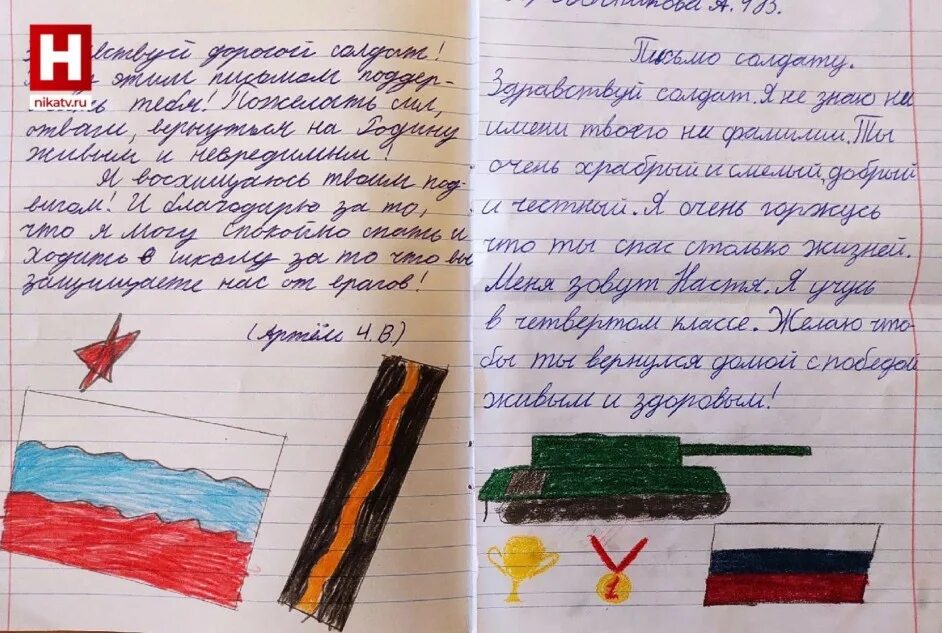 Н
nikatv.ru
дорогой солдат!
этим письмом поддер-
тебя! Пожелать сил,
отваги, вернуться на Родину
живым и невредимым!
Я восхищаюсь твоим под-
вигом! И благодарю за то,
что я могу спокойно спать и
ходить в школу за то что вы
защищаете нас от врагов!
(Артём Ч.В)
А. 4В.
Письмо солдату.
Здравствуй солдат. Я не знаю ни
имени твоего ни фамилии. Ты
очень храбрый и смелый, добрый
и честный. Я очень горжусь
что ты спас столько жизней.
Меня зовут Настя. Я учусь
в четвертом классе. Желаю что-
бы ты вернулся домой с победой
живым и здоровым!
1